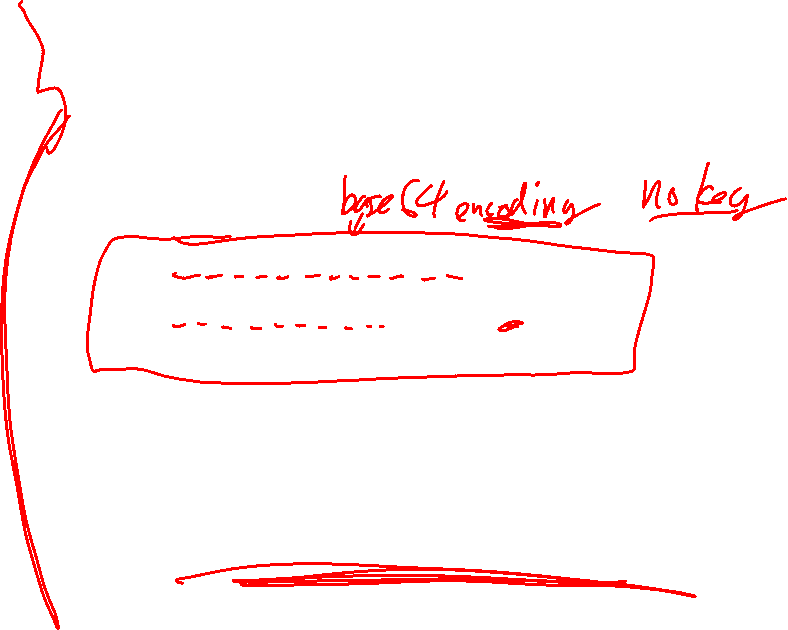 base64 encoding no key